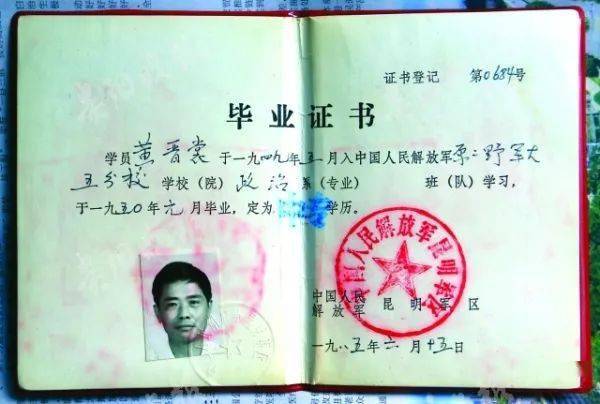 证书登记 第0684号
毕业证书
学员黄晋裳于一九四九年五月入中国人民解放军原二野军大
五分校学校(院)政治系(专业) 班(队)学习,
于一九五〇年元月毕业,定为 学历。
中国人民解放军昆明军区
中国人民
解放军 昆明军区
一九八五年六月十五日